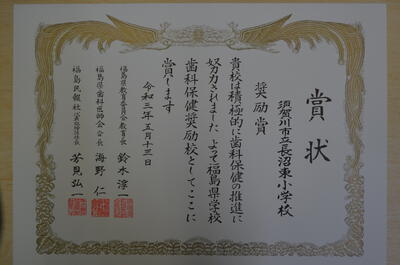 賞状
須賀川市立長沼東小学校
奨励賞
貴校は積極的に歯科保健の推進に
努力されました よって福島県学校
歯科保健奨励校としてここに
賞します
令和三年五月十三日
福島県教育委員会教育長 鈴木淳一
福島県歯科医師会会長 海野仁
福島民報社代表取締役社長 芳見弘一